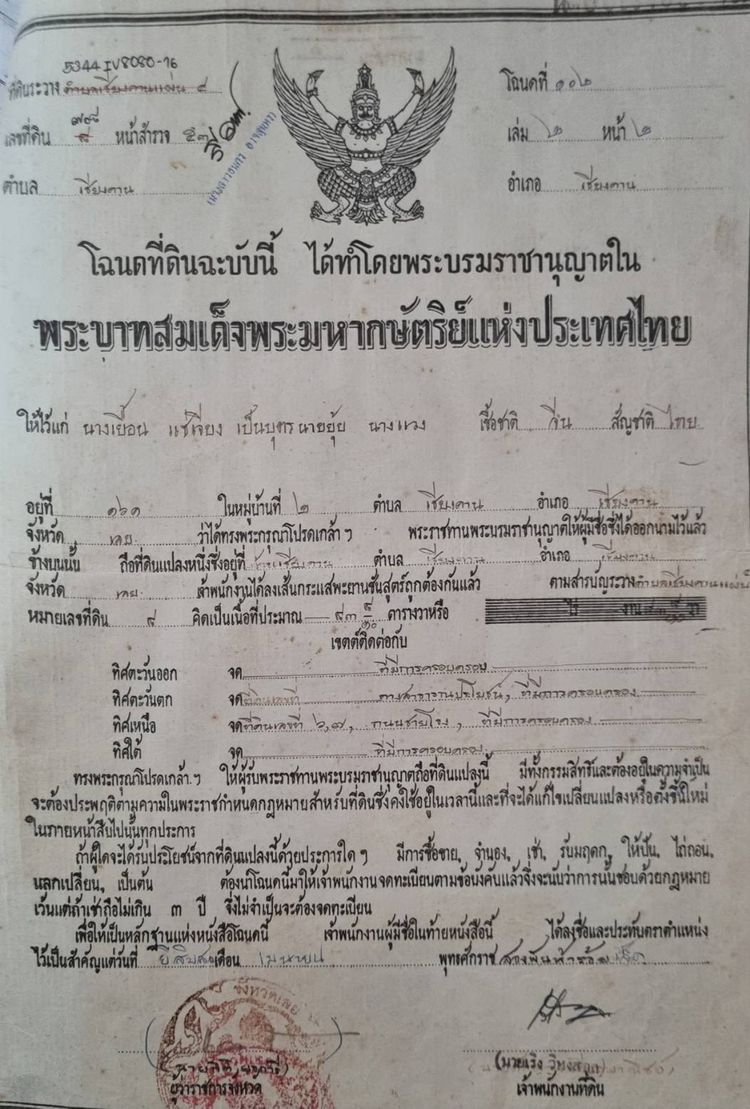 5344 IV 8080-16
ที่ดินระวาง ตำบลเชียงคานแผ่น ๔ โฉนดที่ ๑๐๒
เลขที่ดิน ๔ หน้าสำรวจ ๕๓ เล่ม ๒ หน้า ๒
ตำบล เชียงคาน อำเภอ เชียงคาน
โฉนดที่ดินฉะบับนี้ ได้ทำโดยพระบรมราชานุญาตใน
พระบาทสมเด็จพระมหากษัตริย์แห่งประเทศไทย
ให้ไว้แก่ นางเยื้อน แซ่เจียง เป็นบุตร นายยุ้ย นางแวง เชื้อชาติ จีน สัญชาติ ไทย
อยู่ที่ ๑๖๑ ในหมู่บ้านที่ ๒ ตำบล เชียงคาน อำเภอ เชียงคาน
จังหวัด เลย ว่าได้ทรงพระกรุณาโปรดเกล้า ฯ พระราชทานพระบรมราชานุญาตให้ผู้มีชื่อซึ่งได้ออกนามไว้แล้ว
ข้างบนนั้น ถือที่ดินแปลงหนึ่งซึ่งอยู่ที่ เชียงคาน ตำบล เชียงคาน อำเภอ เชียงคาน
จังหวัด เลย เจ้าพนักงานได้ลงเส้นกระแสพะยานชันสูตร์ถูกต้องกันแล้ว ตามสำรบัญระวาง ตำบลเชียงคานแผ่น
หมายเลขที่ดิน ๔ คิดเป็นเนื้อที่ประมาณ ตารางวาหรือ ไร่ งาน วา
เขตต์ติดต่อกับ
ทิศตะวันออก จด ที่มีการครอบครอง
ทิศตะวันตก จด ที่ดินเลขที่ ทางสาธารณประโยชน์, ที่มีการครอบครอง
ทิศเหนือ จด ที่ดินเลขที่ ถนนชายโขง, ที่มีการครอบครอง
ทิศใต้ จด ที่มีการครอบครอง
ทรงพระกรุณาโปรดเกล้า ฯ ให้ผู้รับพระราชทานพระบรมราชานุญาตถือที่ดินแปลงนี้ มีทั้งกรรมสิทธิ์และต้องอยู่ในความจำเป็น
จะต้องประพฤติตามความในพระราชกำหนดกฎหมายสำหรับที่ดินซึ่งคงใช้อยู่ในเวลานี้และที่จะได้แก้ไขเปลี่ยนแปลงหรือตั้งขึ้นใหม่
ในภายหน้าสืบไปนั้นทุกประการ
ถ้าผู้ใดจะได้รับประโยชน์จากที่ดินแปลงนี้ด้วยประการใด ๆ มีการซื้อขาย, จำนอง, เช่า, รับมฤดก, ให้ปัน, ไถ่ถอน,
แลกเปลี่ยน, เป็นต้น ต้องนำโฉนดนี้มาให้เจ้าพนักงานจดทะเบียนตามข้อบังคับแล้วจึ่งจะนับว่าการนั้นชอบด้วยกฎหมาย
เว้นแต่ถ้าเช่าถือไม่เกิน ๓ ปี จึ่งไม่จำเป็นจะต้องจดทะเบียน
เพื่อให้เป็นหลักฐานแห่งหนังสือโฉนดนี้ เจ้าพนักงานผู้มีชื่อในท้ายหนังสือนี้ ได้ลงชื่อและประทับตราตำแหน่ง
ไว้เป็นสำคัญแต่วันที่ ยี่สิบสี่ เดือน เมษายน พุทธศักราช สองพันห้าร้อย
จังหวัดเลย
ผู้ว่าราชการจังหวัด เจ้าพนักงานที่ดิน